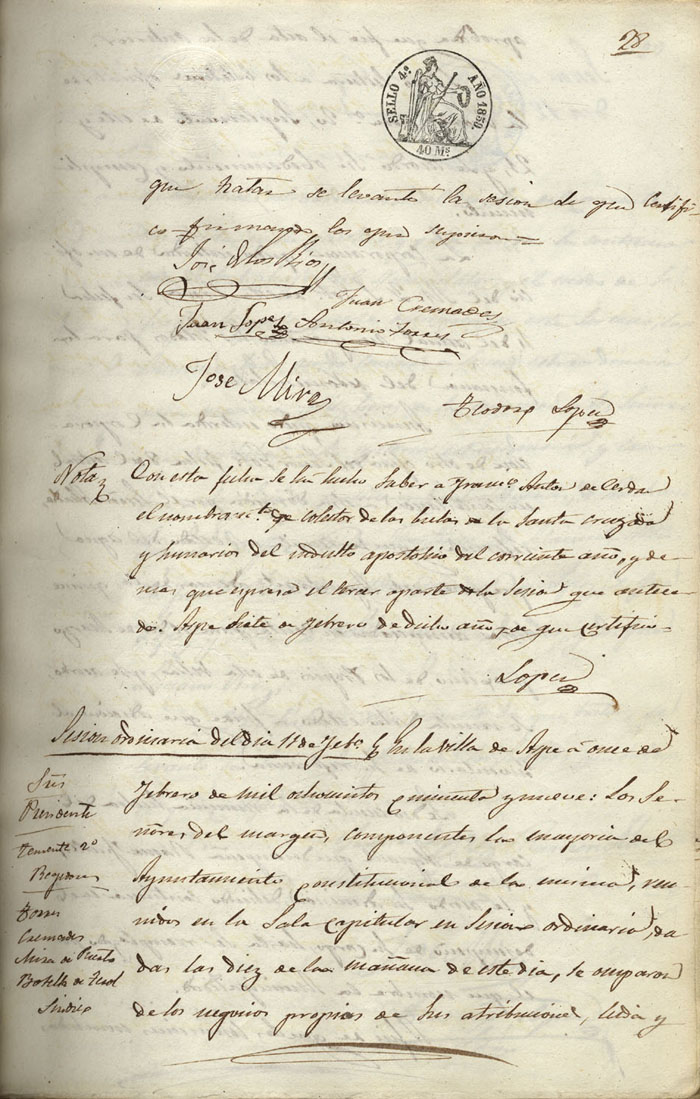 28
SELLO 4.º AÑO 1859.
40 Ms.
que tratar se levantó la sesion de que Certifi
co firmando los que supieron=
José de los Rios
Juan Cremades
Juan Lopez Antonio Torres
Jose Mira
Teodoro Lopez
Nota Con esta fecha se ha hecho saber a Franco. Anton de Cerdan
el nombramto. de coletor de las bulas de la Santa cruzada
y sumarios del indulto apostolico del corriente año, y de
mas que espresa el tercer aparte de la Sesion que antece-
de. Aspe siete de febrero de dicho año, de que certifico-
Lopez
Sesion ordinaria del dia 11 de Febo. En la Villa de Aspe á once de
Febrero de mil ochocientos cincuenta y nueve: Los Se-
ñores del margen, componentes la mayoria del
Ayuntamiento constitucional de la misma, reu-
nidos en la Sala capitular en Sesion ordinaria, da-
das las diez de la mañana de este dia, se ocuparon
de los negocios propios de sus atribuciones, leida y
Sres
Presidente
Teniente 2º
Regidores
Torres
Cremades
Mira de Puerto
Botella de
Sindico